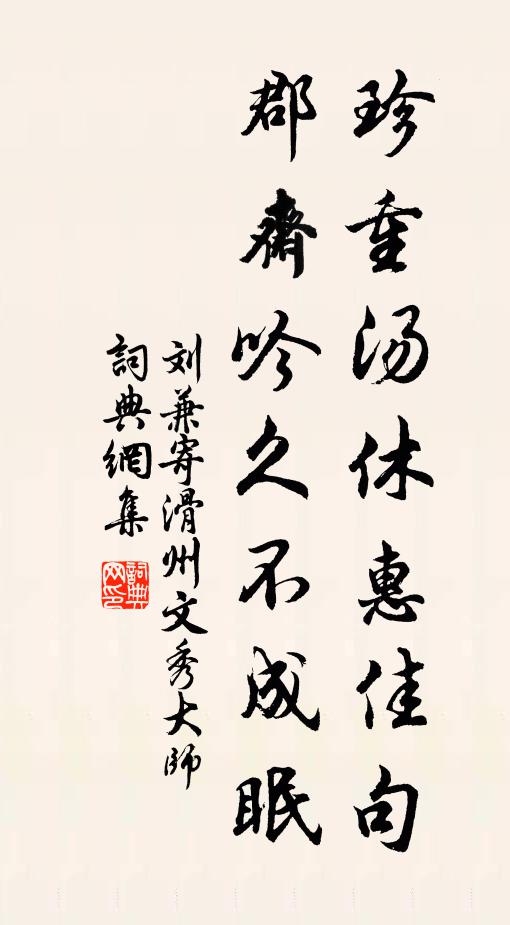 珍重汤休惠佳句
郡齋吟久不成眠
刘兼寄滑州文秀大师
詞典網集
詞典网印